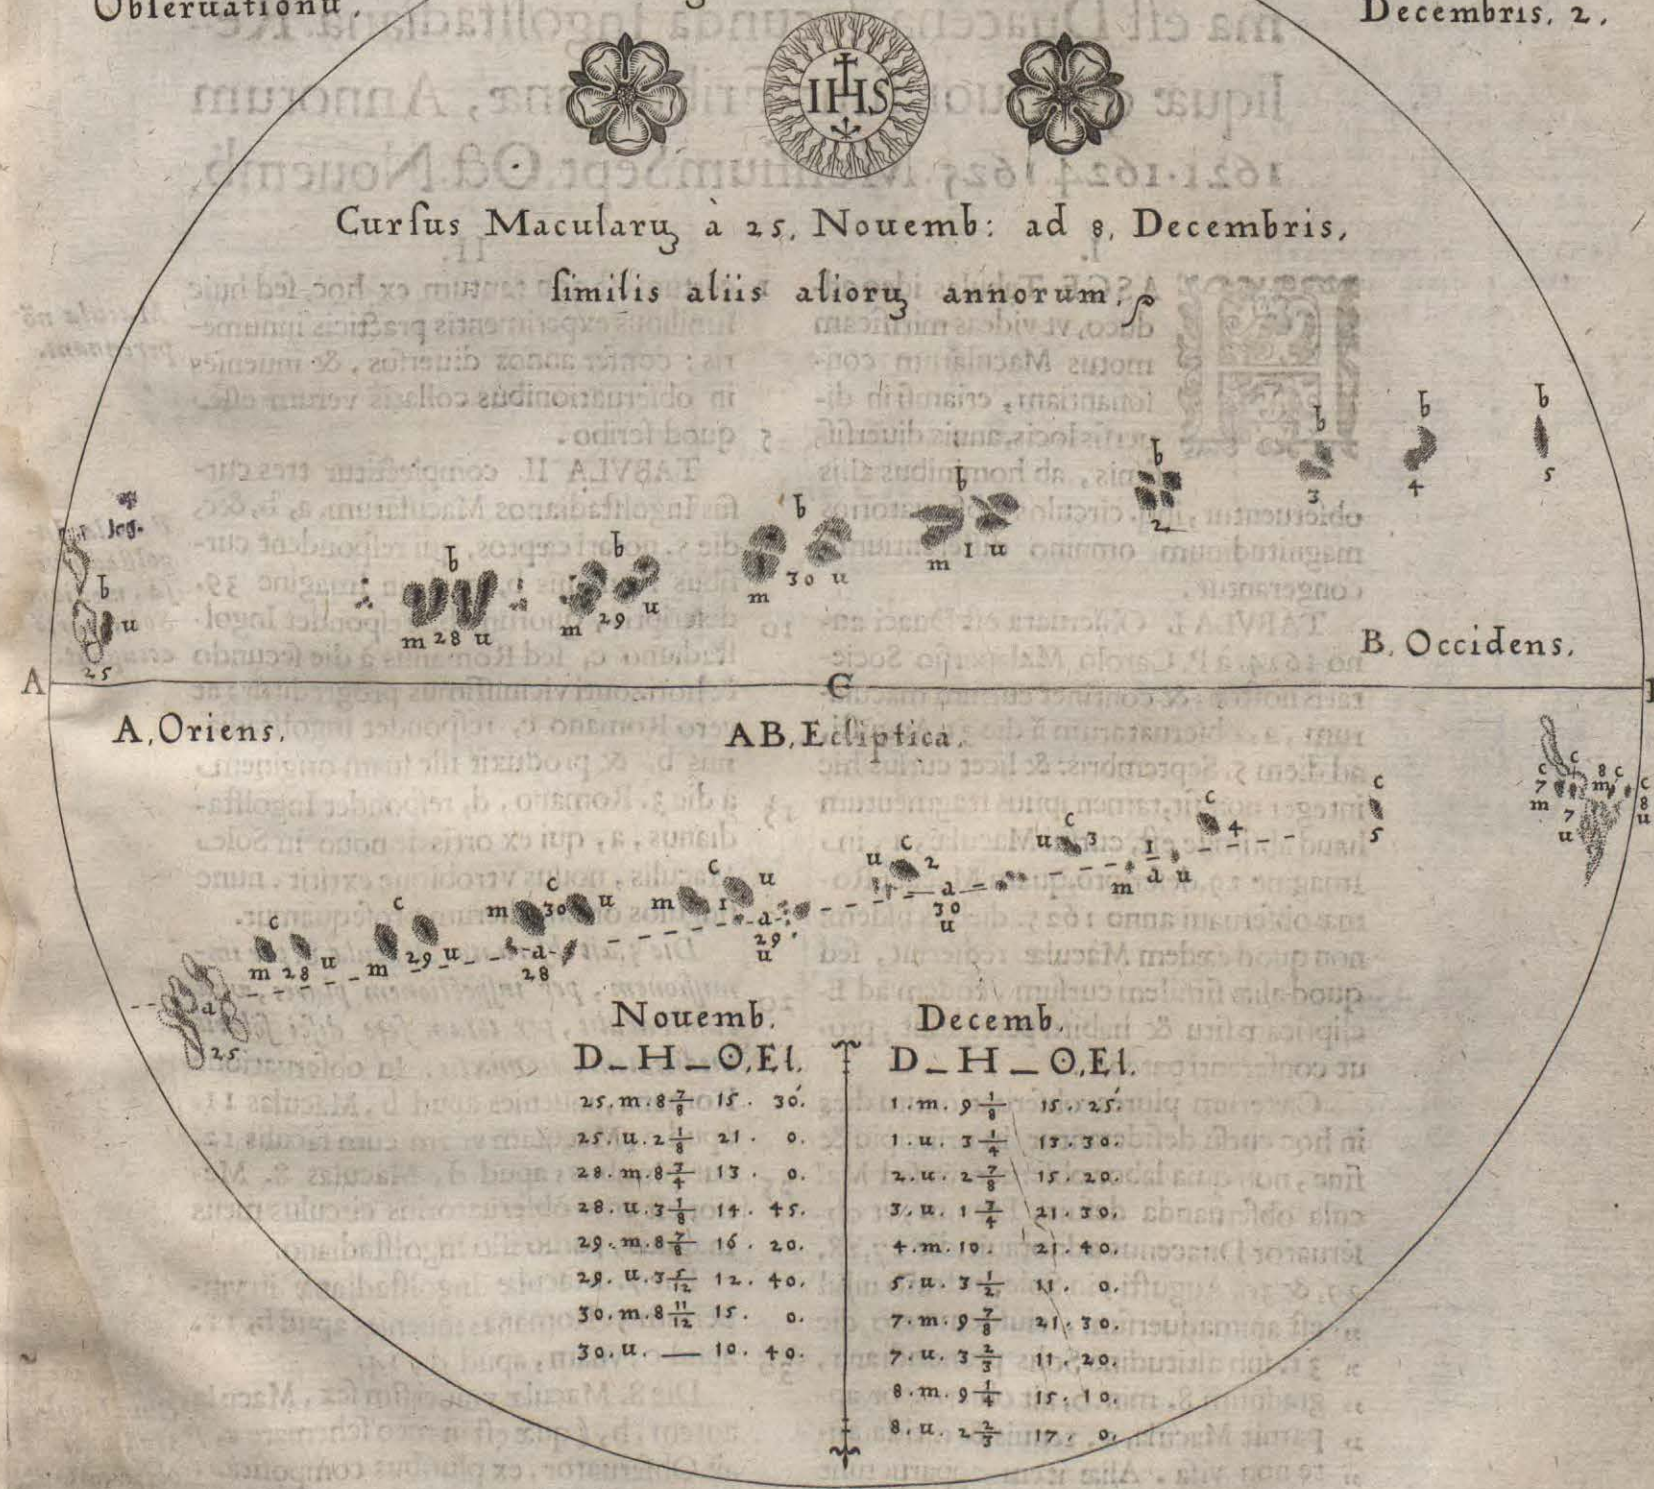 Obseruationū.
Decembris. 2.
IHS
Cursus Macularuʒ à 25. Nouemb: ad 8. Decembris,
similis aliis alioruʒ annorum.
b b b b b b b b b
m 28 u
m 29 u
m 30 u
m 1 u
2
3
4
5
b u
25
A
C
B. Occidens.
A. Oriens.
AB. Ecliptica.
c m 28 u
c m 29 u
m c 30 u
m c 1 u
u c 2
u c 3
c 4
c 5
c 7 m
c 7 u
8 c m
c 8 u
d 25
d 28
d 29 u
d 30 u
m 1 d u
Nouemb.
D_H_☉.El.
25.m.8 7/8 15. 30.
25.u.2 1/8 21. 0.
28.m.8 3/4 13. 0.
28.u.3 1/8 14. 45.
29.m.8 7/8 16. 20.
29.u.3 5/12 12. 40.
30.m.8 11/12 15. 0.
30.u. — 10. 40.
Decemb.
D_H_☉.El.
1.m. 9 1/8 15. 25.
1.u. 3 1/4 13. 30.
2.u. 2 7/8 15. 20.
3.u. 1 3/4 21. 30.
4.m. 10. 21. 40.
5.u. 3 1/2 11. 0.
7.m. 9 7/8 21. 30.
7.u. 3 2/3 11. 20.
8.m. 9 1/4 15. 10.
8.u. 2 2/3 17. 0.